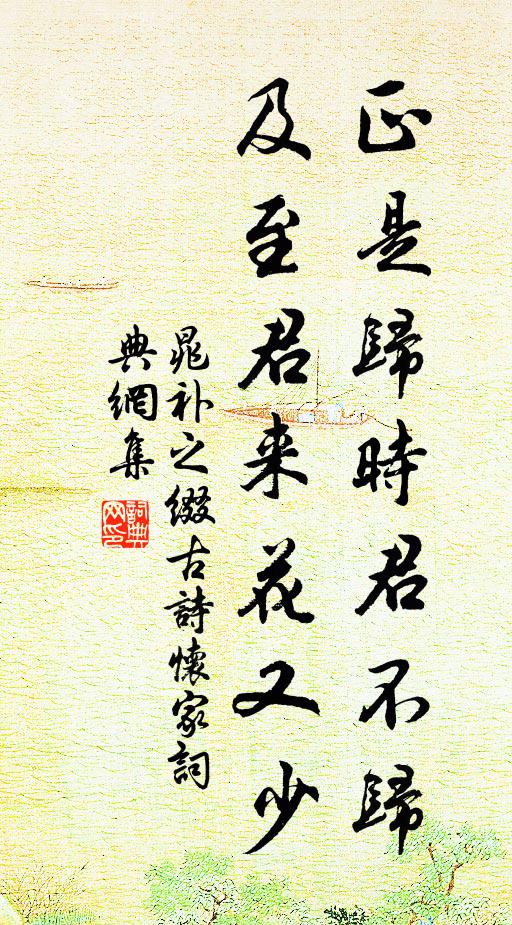 正是歸時君不歸
及至君来花又少
晁补之缀古詩懷家詞
典網集
詞典网印